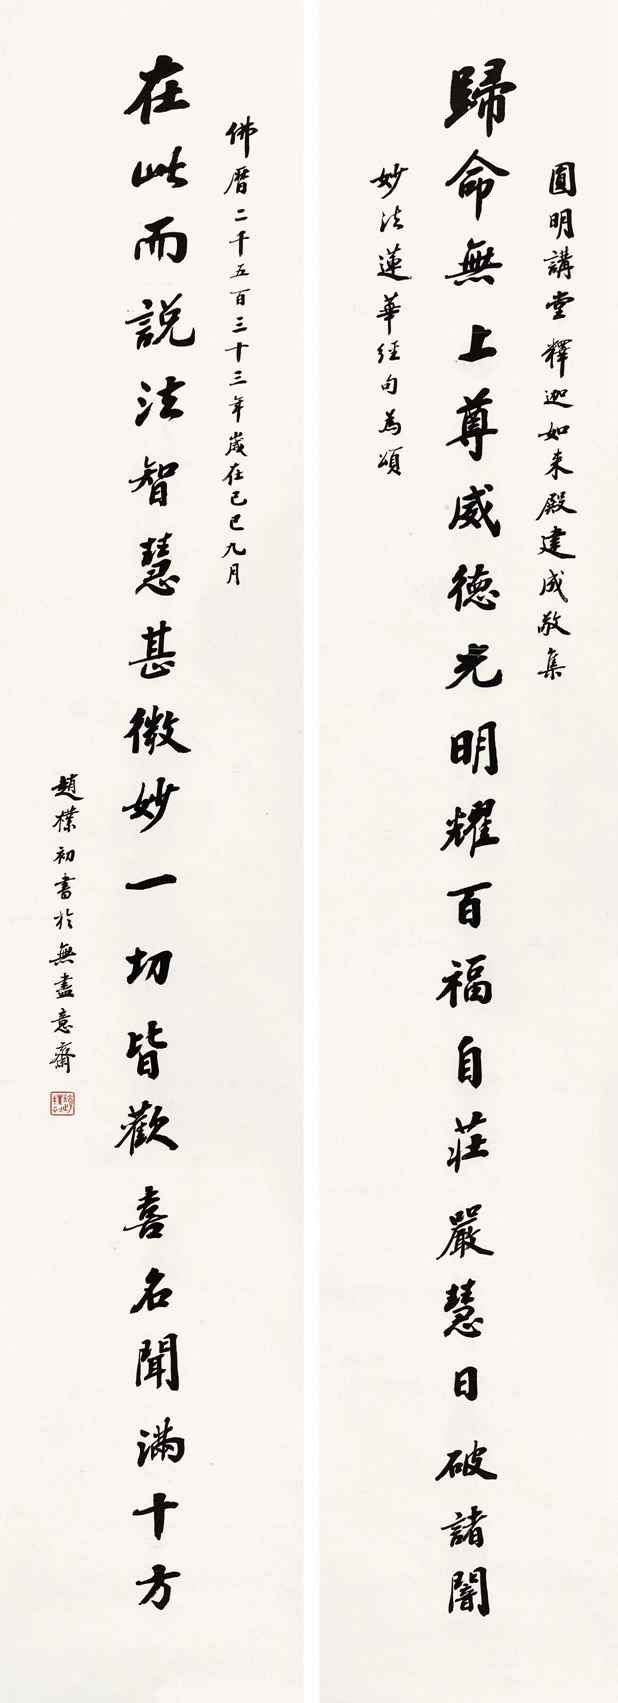 圓明講堂釋迦如来殿建成敬集
歸命無上尊威德光明耀百福自莊嚴慧日破諸闇
妙法蓮華経句為頌
佛曆二千五百三十三年歲在己巳九月
在此而說法智慧甚微妙一切皆歡喜名聞滿十方
趙樸初書於無盡意齋